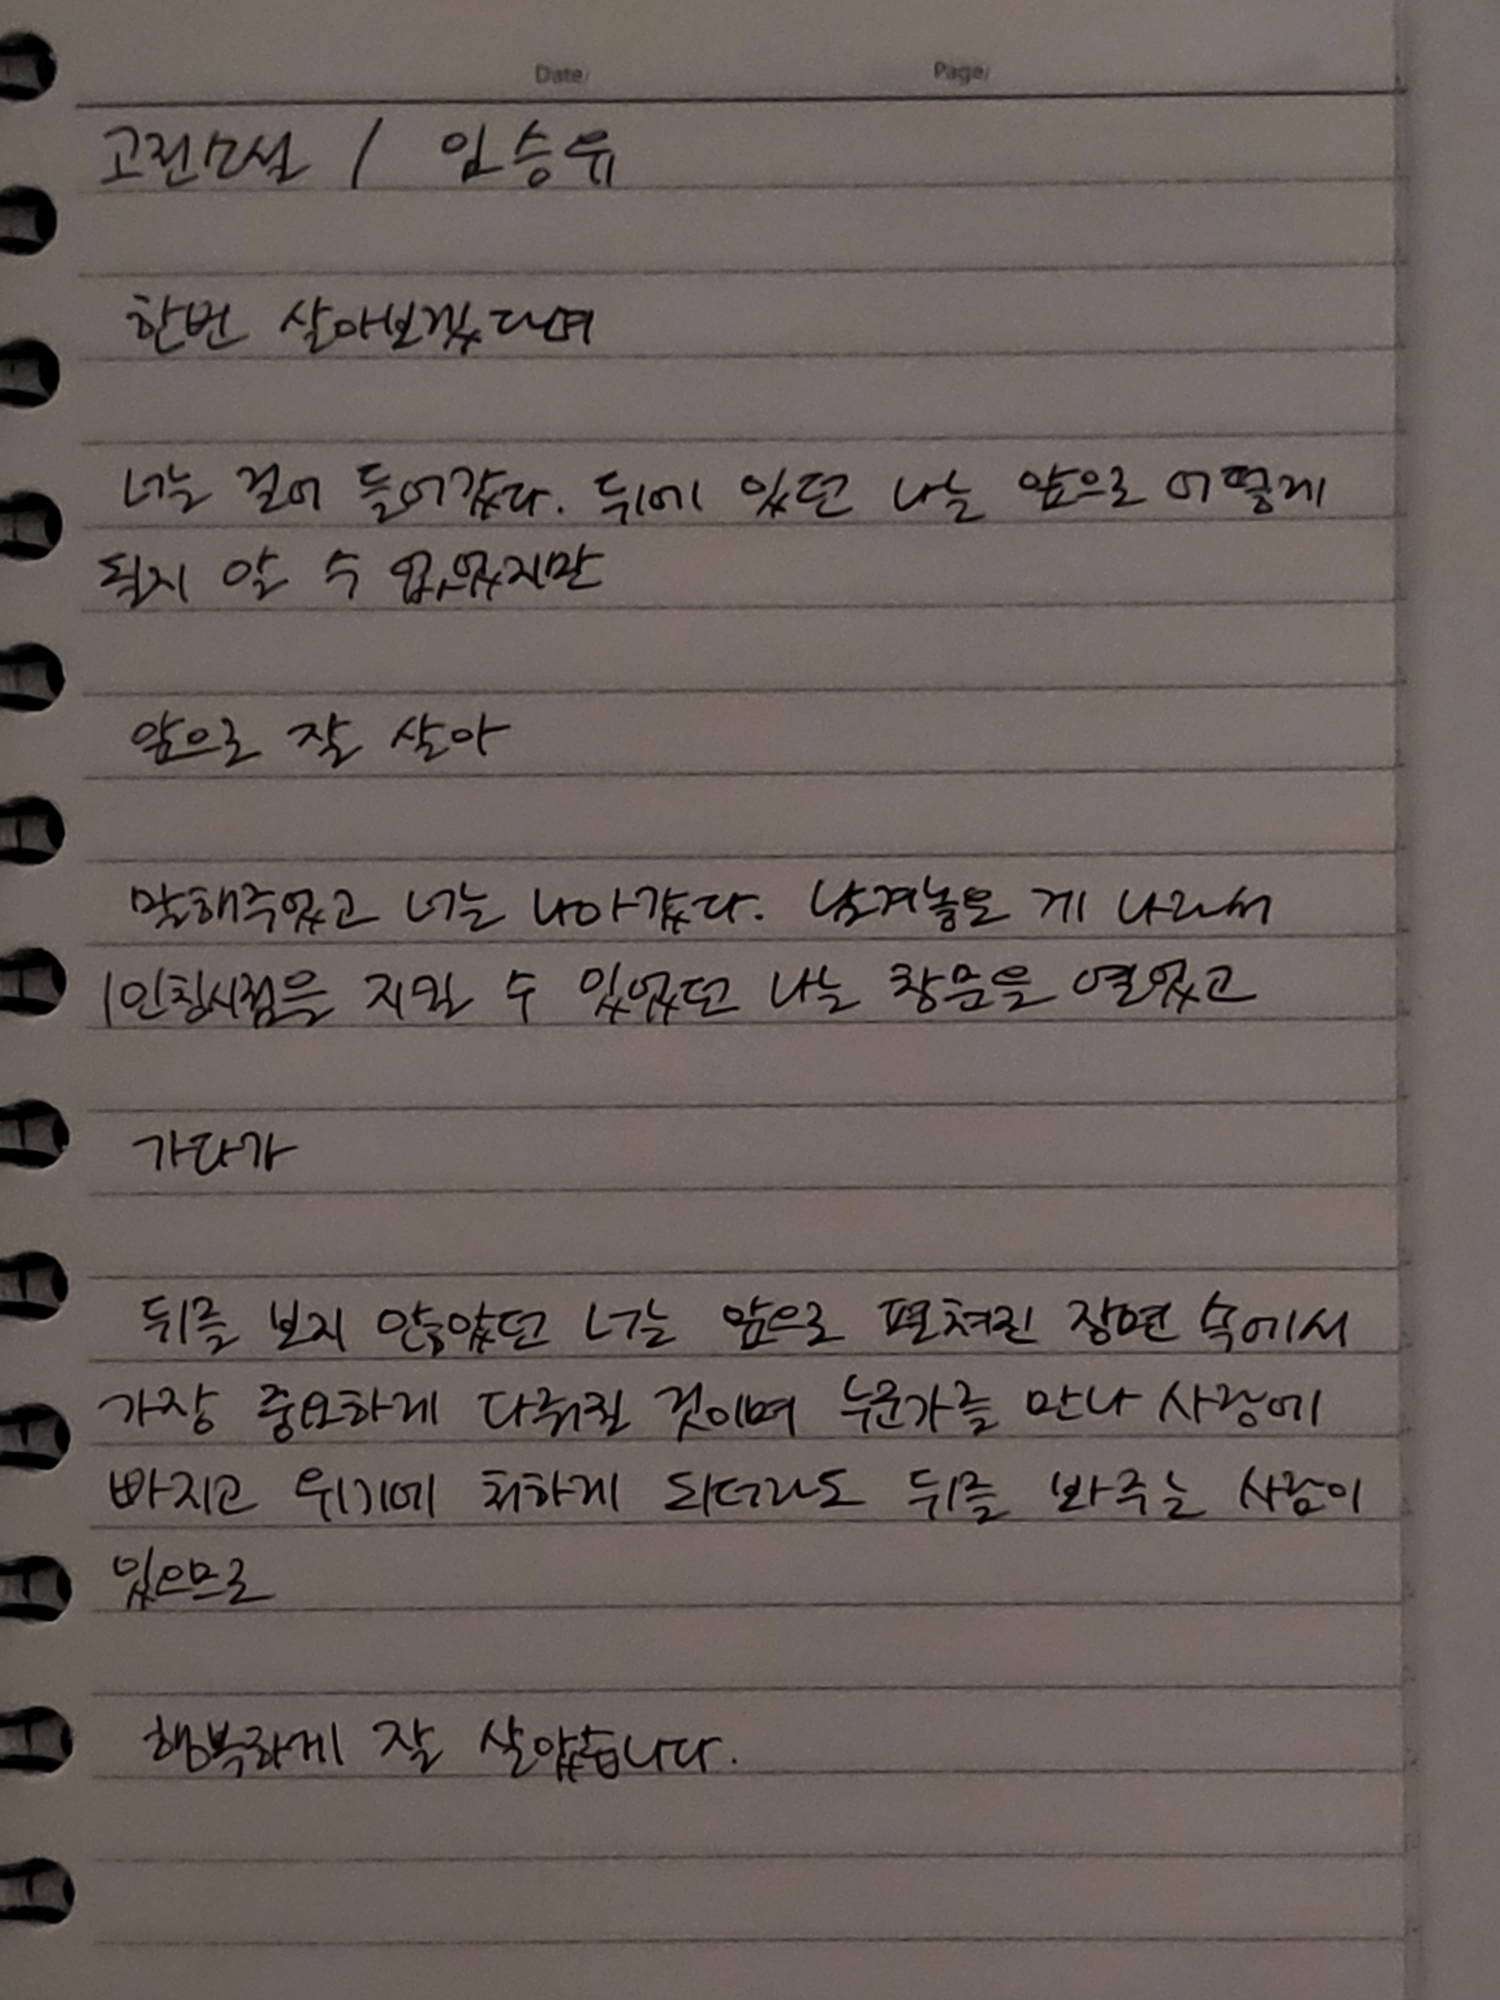 Date/ Page/
고전소설 / 임승유
한번 살아보겠다며
너는 걸어 들어갔다. 뒤에 있던 나는 앞으로 어떻게
될지 알 수 없었지만
앞으로 잘 살아
말해주었고 너는 나아갔다. 남겨놓은 게 나라서
1인칭시점을 지닐 수 있었던 나는 창문을 열었고
가다가
뒤를 보지 않았던 너는 앞으로 펼쳐진 장면 속에서
가장 중요하게 다뤄질 것이며 누군가를 만나 사랑에
빠지고 위기에 처하게 되더라도 뒤를 봐 주는 사람이
있으므로
행복하게 잘 살았습니다.